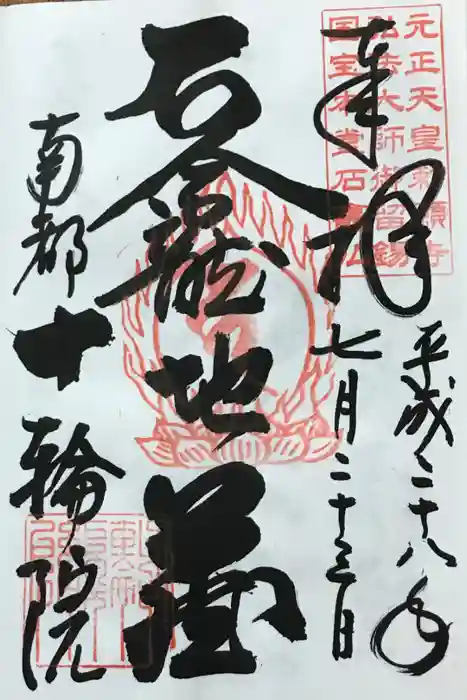 奉拝
平成二十八年
七月二十三日
石龕地蔵
南都十輪院
元正天皇勅願寺
弘法大師御留錫
国宝本堂石仏